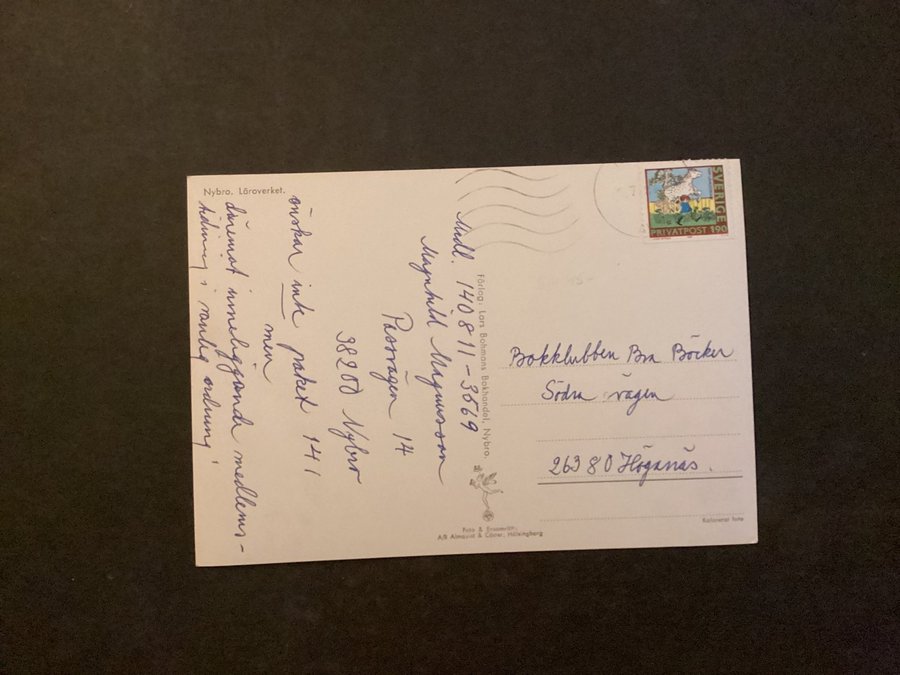 Nybro. Läroverket.
Medl. 140811-3569
Magnhild Magnusson
Passvägen 14
38200 Nybro
önskar inte paket 141
men
däremot inneliggande medlems-
tidning i vanlig ordning!
Förlag: Lars Bohmans Bokhandel, Nybro.
Foto & Ensamrätt:
A/B Almqvist & Cöster, Hälsingborg
SVERIGE
PRIVATPOST 190
Bokklubben Bra Böcker
Södra vägen
26380 Höganäs.
Kolorerat foto